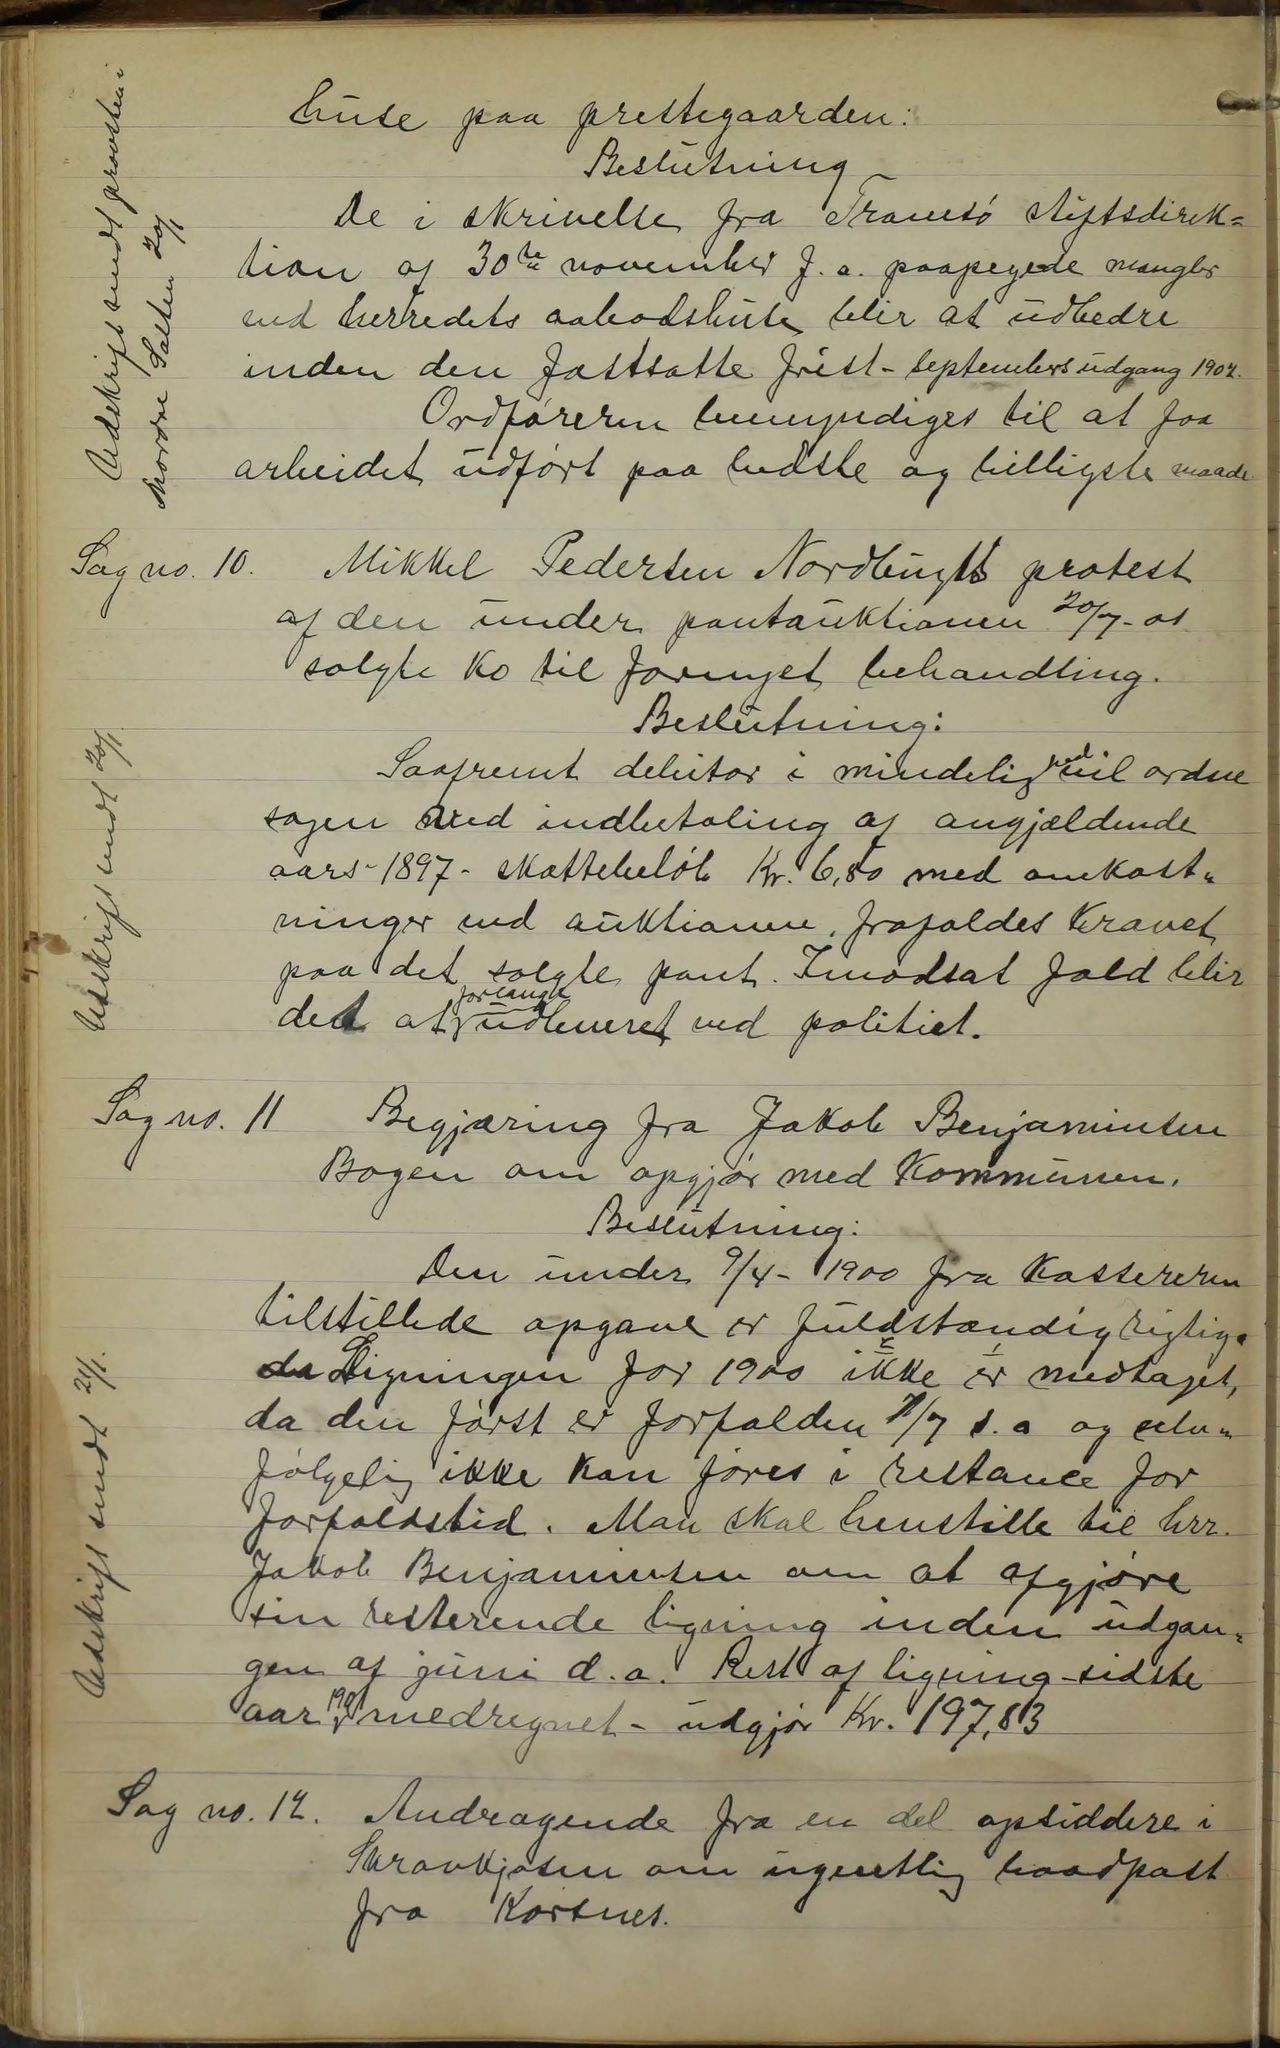 huse paa prestegaarden:
Beslutning
De i skrivelse fra Tromsø stiftsdirek-
tion af 30te november f. a. paapegede mangler
ved herredets aabodshuse blir at udbedre
inden den fastsatte frist - septembers udgang 1902.
Ordføreren bemyndiges til at faa
arbeidet udført paa bedste og billigste maade
Udskrift sendt provsten i
Nordre Salten 20/1
Sag no. 10. Mikkel Pedersen Nordbugts protest
af den under pantauktionen 20/7-01
solgte ko til fornyet behandling.
Beslutning:
Saafremt debitor i mindelighed vil ordne
sagen ved indbetaling af angjældende
aars - 1897 - skattebeløb Kr. 6,80 med omkost-
ninger ved auktionen, frafaldes kravet
paa det solgte pant. Imodsat fald blir
det at forlange udleveret ved politiet.
Udskrift sendt 20/1
Sag no. 11 Begjæring fra Jakob Benjaminsen
Bogen om opgjør med Kommunen.
Beslutning:
Den under 9/4 - 1900 fra Kassereren
tilstillede opgave er fuldstændig rigtig.
da Ligningen for 1900 ikke er medtaget,
da den først er forfalden /7 s. a og selv-
følgelig ikke kan føres i restance før
forfaldstid. Man skal henstille til hrr.
Jakob Benjaminsen om at afgjøre
sin resterende ligning inden udgan-
gen af juni d. a. Rest af ligning - sidste
aar 1901 medregnet - udgjør Kr. 197,83
Udskrift sendt 21/1.
Sag no. 12. Andragende fra en del opsiddere i
Skrovkjosen om ugentlig baadpost
fra Korsnes.